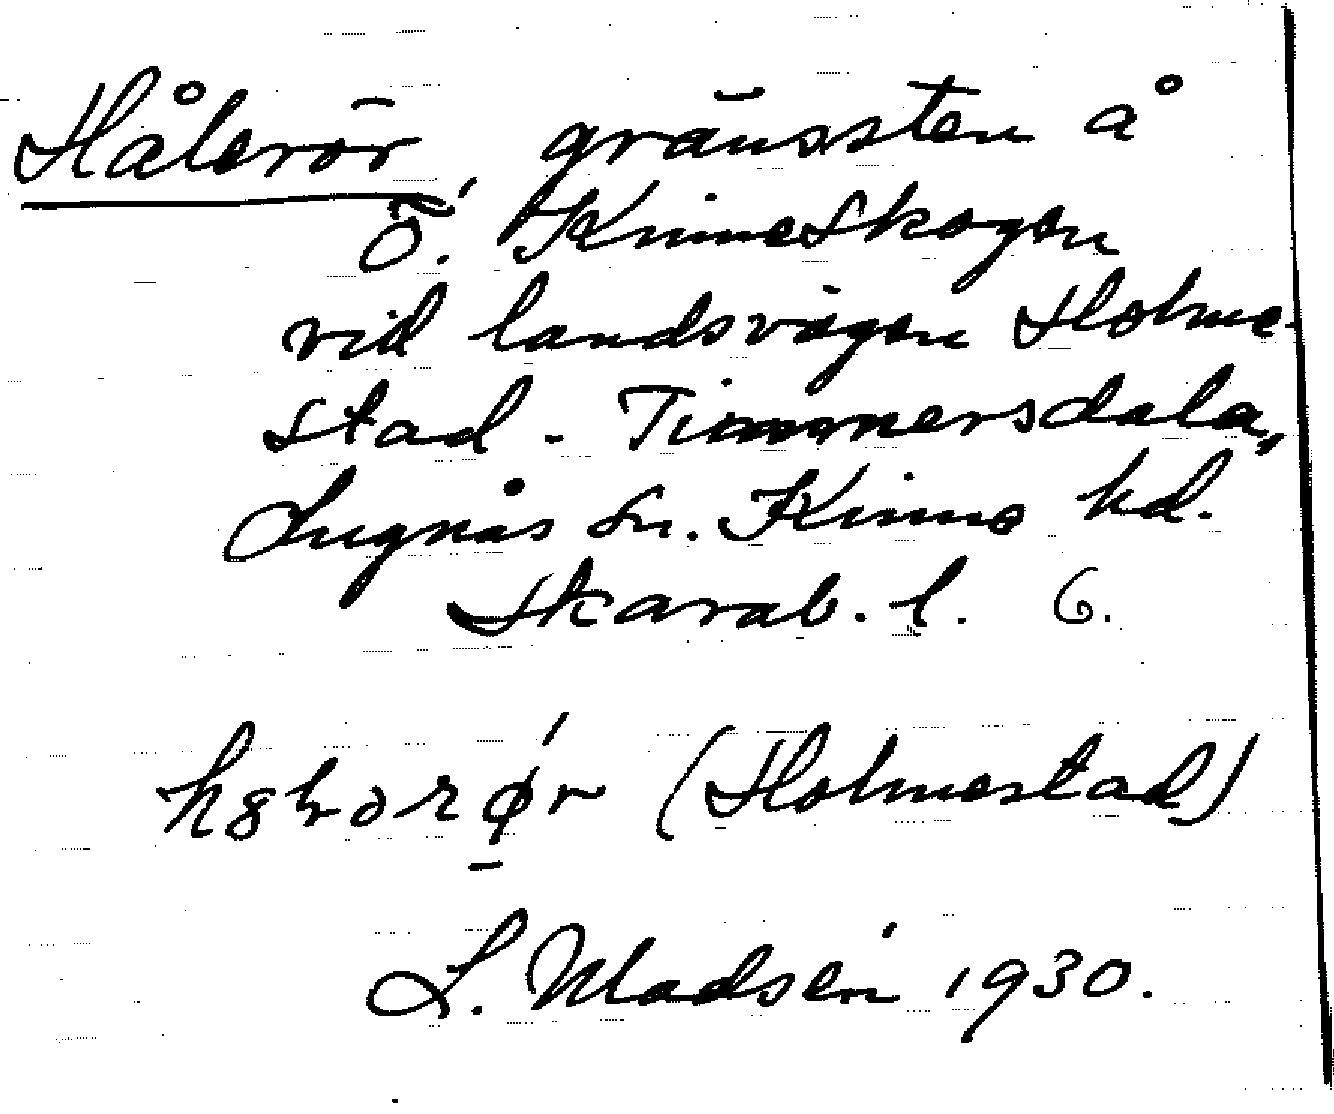 Hålerör, gränssten å
Ö. Kinneskogen
vid landsvägen Holme-
stad - Timmersdala,
Lugnås sn. Kinne hd.
Skarab. l. G.
(Holmestad)
L. Madsén 1930.